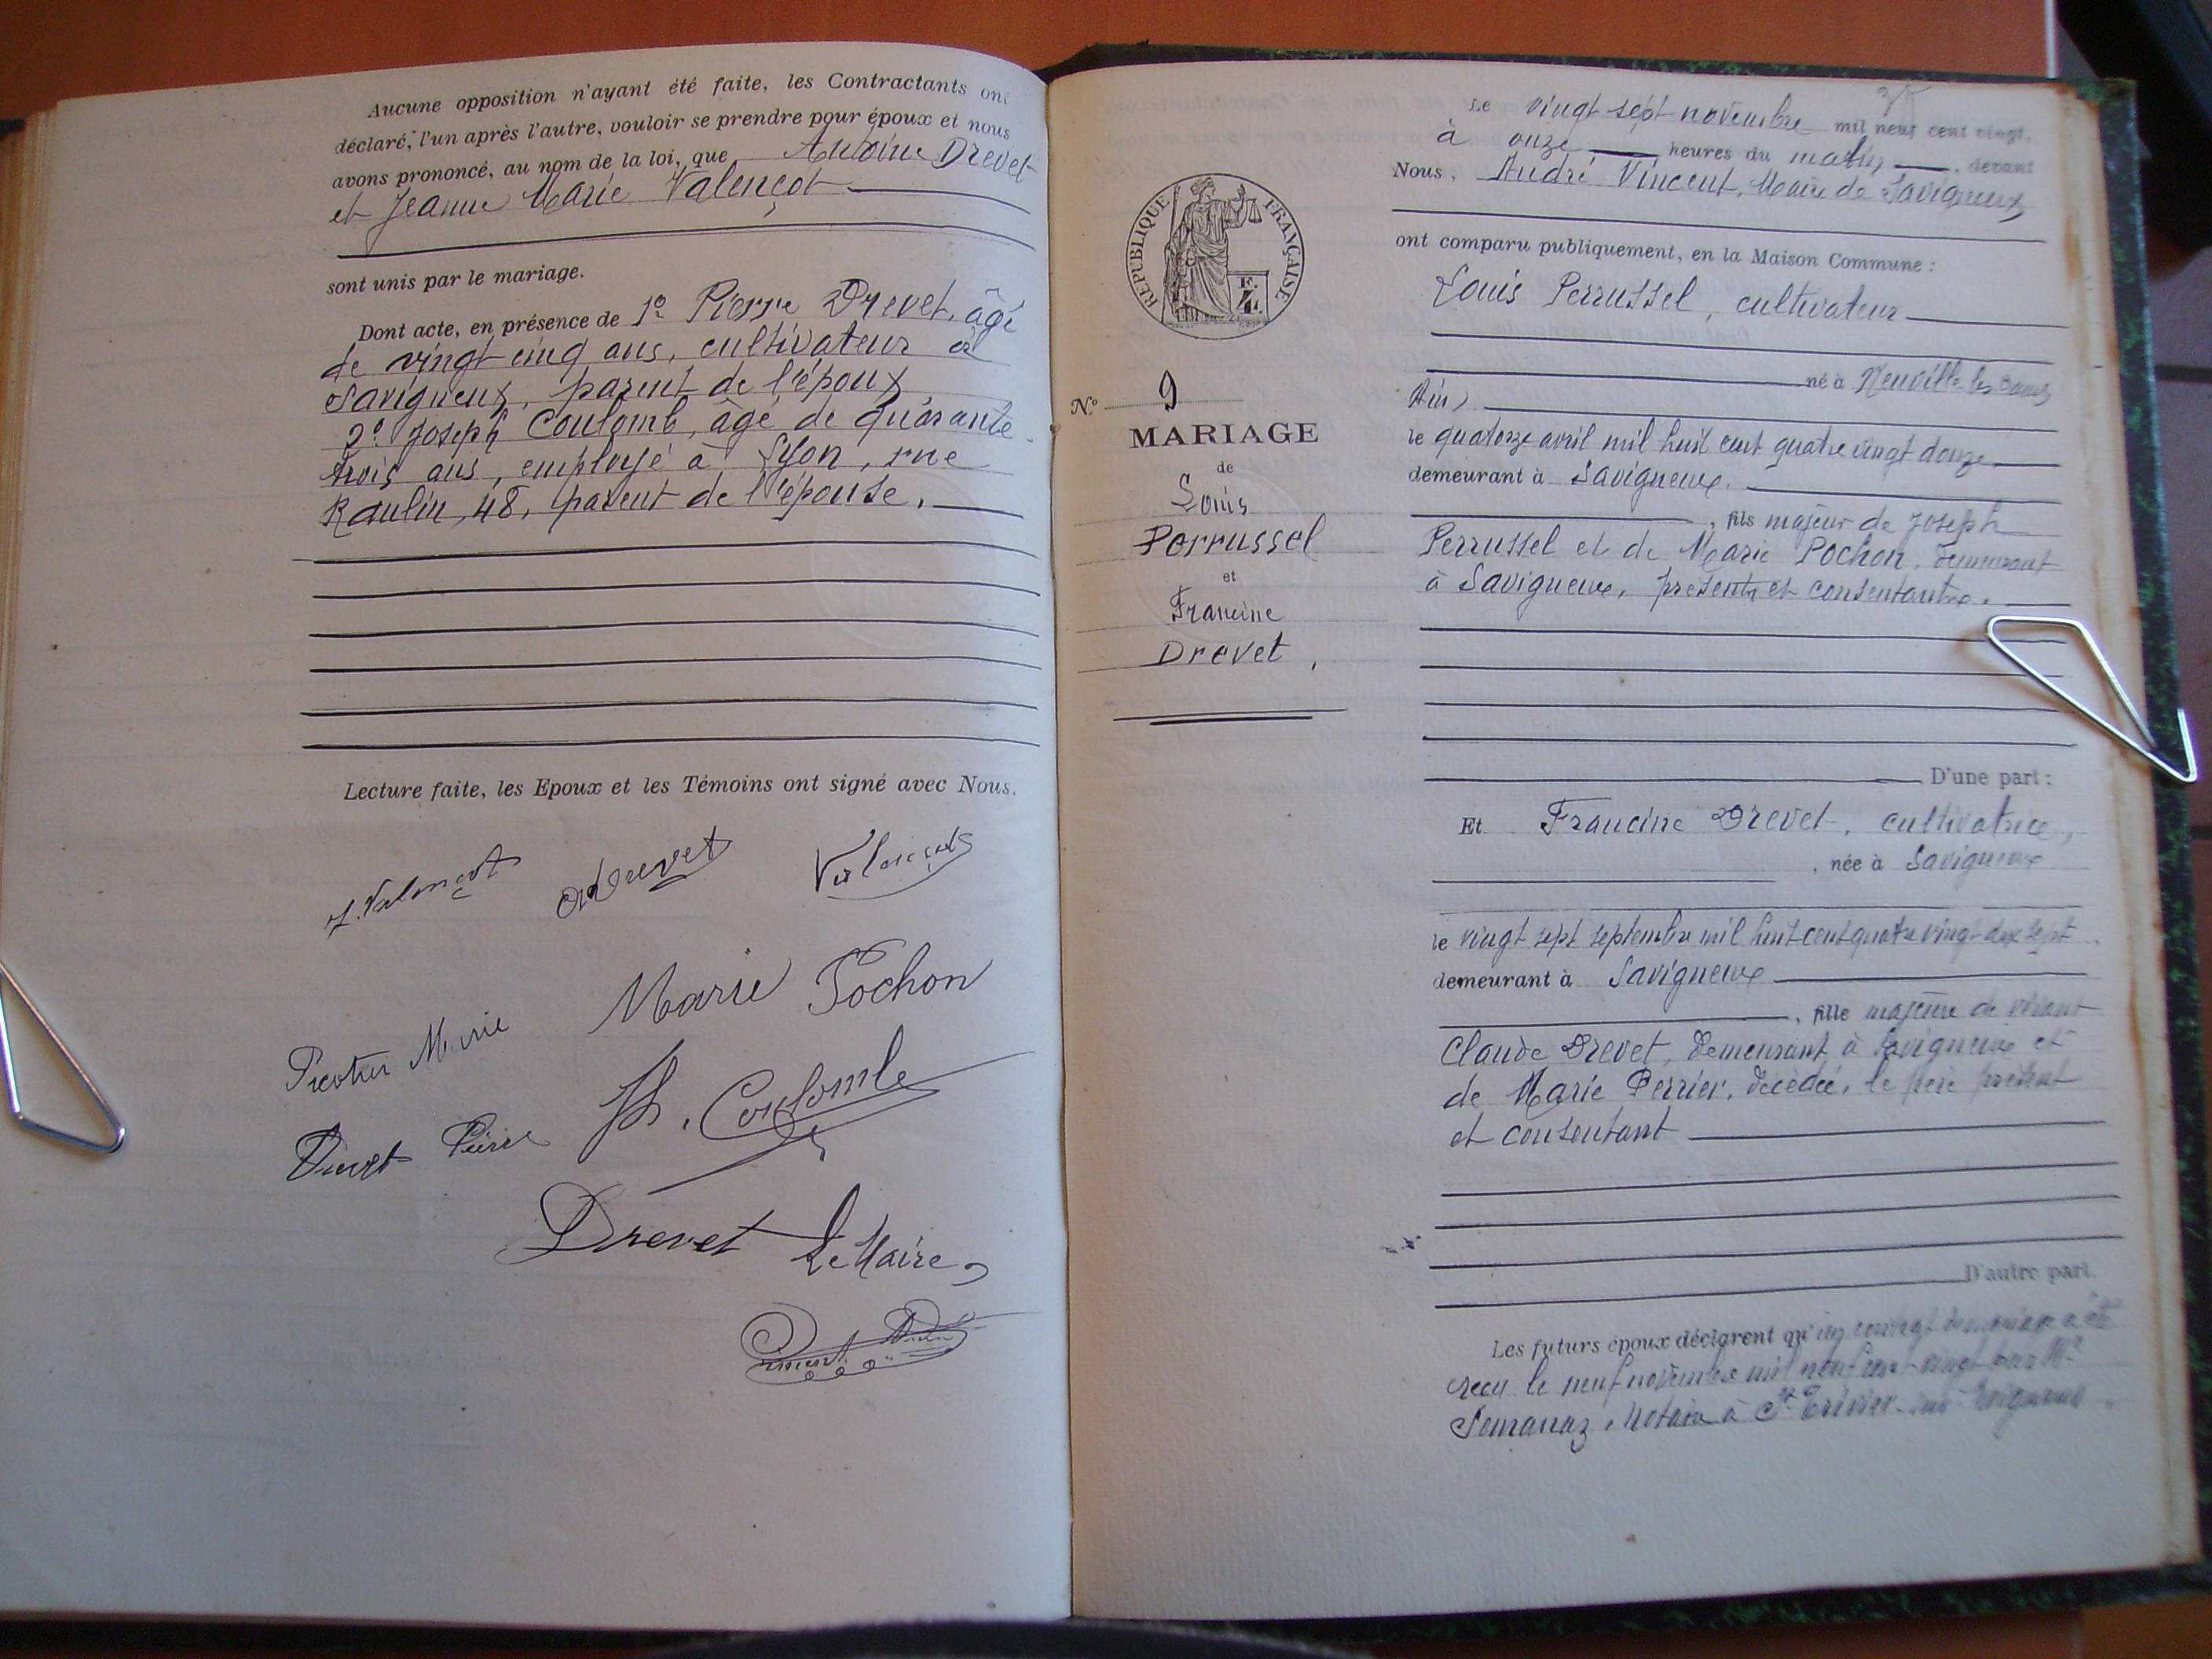 Aucune opposition n'ayant été faite, les Contractants ont
déclaré, l'un après l'autre, vouloir se prendre pour époux et nous
avons prononcé, au nom de la loi, que Antoine Drevet
et Jeanne Marie Valençot
sont unis par le mariage.
Dont acte, en présence de 1º Pierre Drevet, âgé
de vingt cinq ans, cultivateur à
Savigneux, parent de l'époux
2º Joseph Coulomb, âgé de quarante
trois ans, employé à Lyon, rue
Raulin, 48, parent de l'épouse.
Lecture faite, les Epoux et les Témoins ont signé avec Nous.
J. Valençot Drevet Valençot
Marie Pochon
Marie
Jh. Coulombe
Drevet Pierre
Drevet Le Maire
Vincent
Le vingt sept novembre mil neuf cent vingt,
à onze heures du matin, devant
Nous, André Vincent, Maire de Savigneux
ont comparu publiquement, en la Maison Commune :
Louis Perrussel, cultivateur
né à Neuville les Dames
Ain,
le quatorze avril mil huit cent quatre vingt douze
demeurant à Savigneux
, fils majeur de Joseph
Perrussel et de Marie Pochon, demeurant
à Savigneux, présents et consentants.
D'une part :
Et Francine Drevet, cultivatrice,
, née à Savigneux
le vingt sept septembre mil huit cent quatre vingt dix sept
demeurant à Savigneux
, fille majeure de vivant
Claude Drevet, demeurant à Savigneux et
de Marie Perrier, décédée, le père présent
et consentant
D'autre part.
Les futurs époux déclarent qu'un contrat de mariage a été
reçu le neuf novembre mil neuf cent vingt par Me
notaire à St Trivier sur Moignans
RÉPUBLIQUE FRANÇAISE
F.
4
No 9
MARIAGE
de
Louis
Perrussel
et
Francine
Drevet,